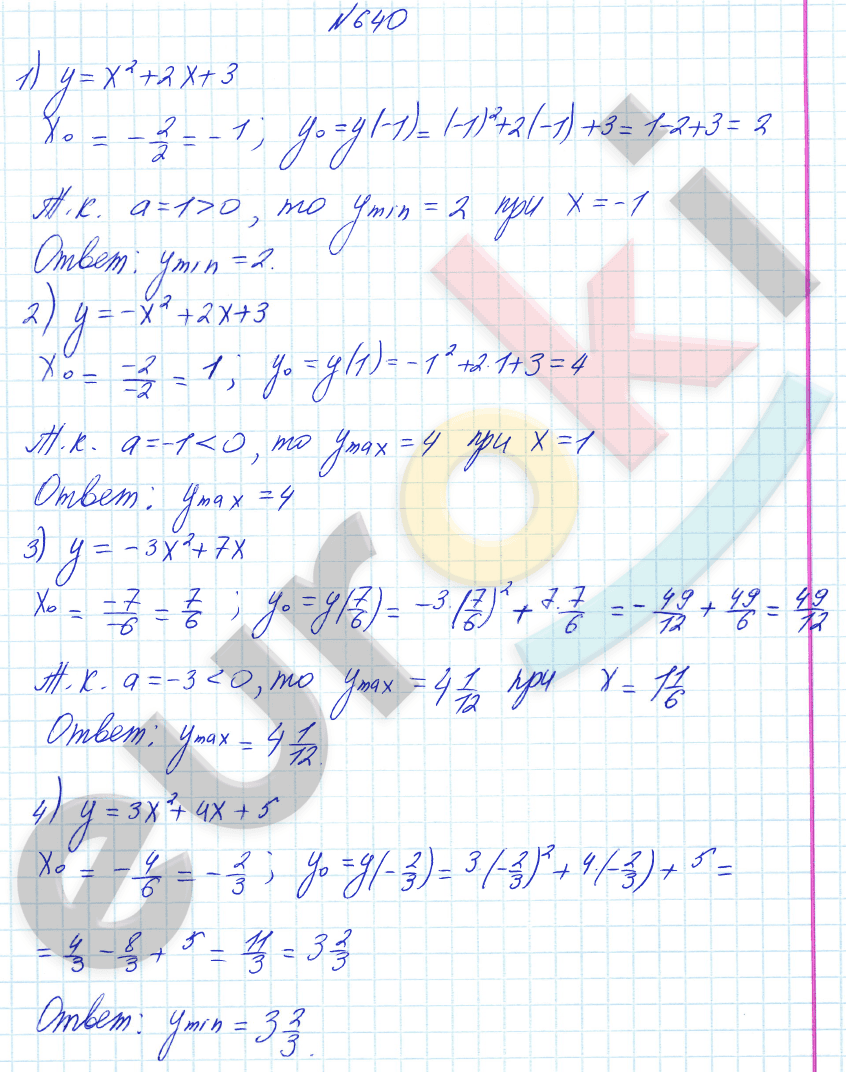 №640
1) y = x² + 2x + 3
x₀ = -2/2 = -1; y₀ = y(-1) = (-1)² + 2(-1) + 3 = 1-2+3 = 2
Т.к. a=1>0, то ymin = 2 при x = -1
Ответ: ymin = 2.
2) y = -x² + 2x + 3
x₀ = -2/-2 = 1; y₀ = y(1) = -1² + 2·1 + 3 = 4
Т.к. a=-1<0, то ymax = 4 при x = 1
Ответ: ymax = 4
3) y = -3x² + 7x
x₀ = -7/-6 = 7/6; y₀ = y(7/6) = -3·(7/6)² + 7·7/6 = -49/12 + 49/6 = 49/12
Т.к. a=-3<0, то ymax = 4 1/12 при x = 1 1/6
Ответ: ymax = 4 1/12.
4) y = 3x² + 4x + 5
x₀ = -4/6 = -2/3; y₀ = y(-2/3) = 3(-2/3)² + 4·(-2/3) + 5 =
= 4/3 - 8/3 + 5 = 11/3 = 3 2/3
Ответ: ymin = 3 2/3.
euroki